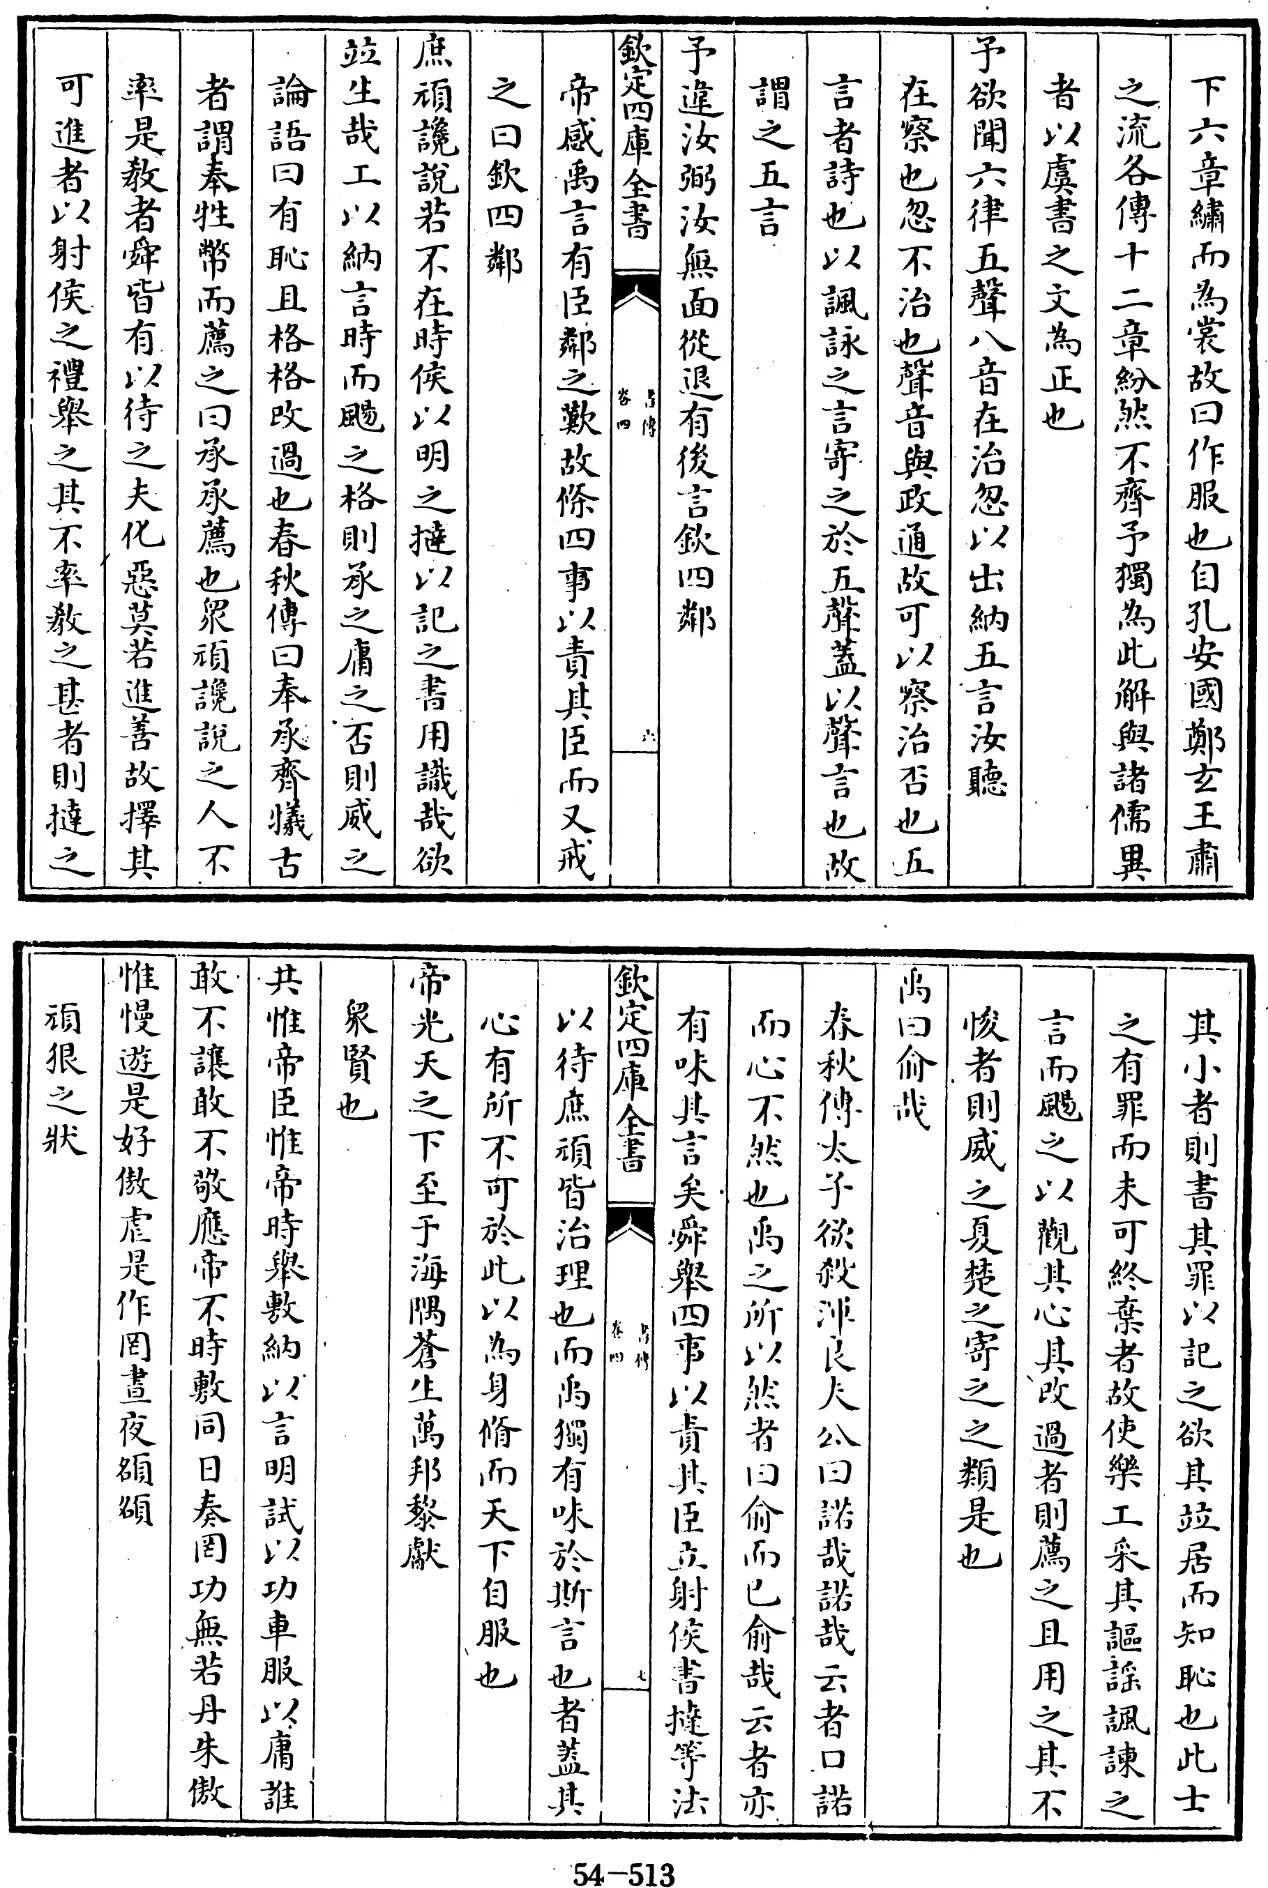 下六章繡而為裳故曰作服也自孔安國鄭玄王肅
之流各傳十二章紛然不齊予獨為此解與諸儒異
者以虞書之文為正也
予欲聞六律五聲八音在治忽以出納五言汝聽
在察也忽不治也聲音與政通故可以察治否也五
言者詩也以諷詠之言寄之於五聲蓋以聲言也故
謂之五言
予違汝弼汝無面從退有後言欽四鄰
欽定四庫全書
書傳
卷四
六
帝感禹言有臣鄰之歎故條四事以責其臣而又戒
之曰欽四鄰
庶頑讒說若不在時侯以明之撻以記之書用識哉欲
竝生哉工以納言時而颺之格則承之庸之否則威之
論語曰有恥且格格改過也春秋傳曰奉承齊犧古
者謂奉牲幣而薦之曰承承薦也衆頑讒說之人不
率是教者舜皆有以待之夫化惡莫若進善故擇其
可進者以射侯之禮舉之其不率教之甚者則撻之
其小者則書其罪以記之欲其竝居而知恥也此士
之有罪而未可終棄者故使樂工采其謳謡諷諫之
言而颺之以觀其心其改過者則薦之且用之其不
悛者則威之夏楚之寄之之類是也
禹曰俞哉
春秋傳太子欲殺渾良夫公曰諾哉諾哉云者口諾
而心不然也禹之所以然者曰俞而已俞哉云者亦
有味其言矣舜舉四事以責其臣立射侯書撻等法
欽定四庫全書
書傳
卷四
七
以待庶頑皆治理也而禹獨有味於斯言也者蓋其
心有所不可於此以為身脩而天下自服也
帝光天之下至于海隅蒼生萬邦黎獻
衆賢也
共惟帝臣惟帝時舉敷納以言明試以功車服以庸誰
敢不讓敢不敬應帝不時敷同日奏罔功無若丹朱傲
惟慢遊是好傲虐是作罔晝夜頟頟
頑狠之狀
54-513